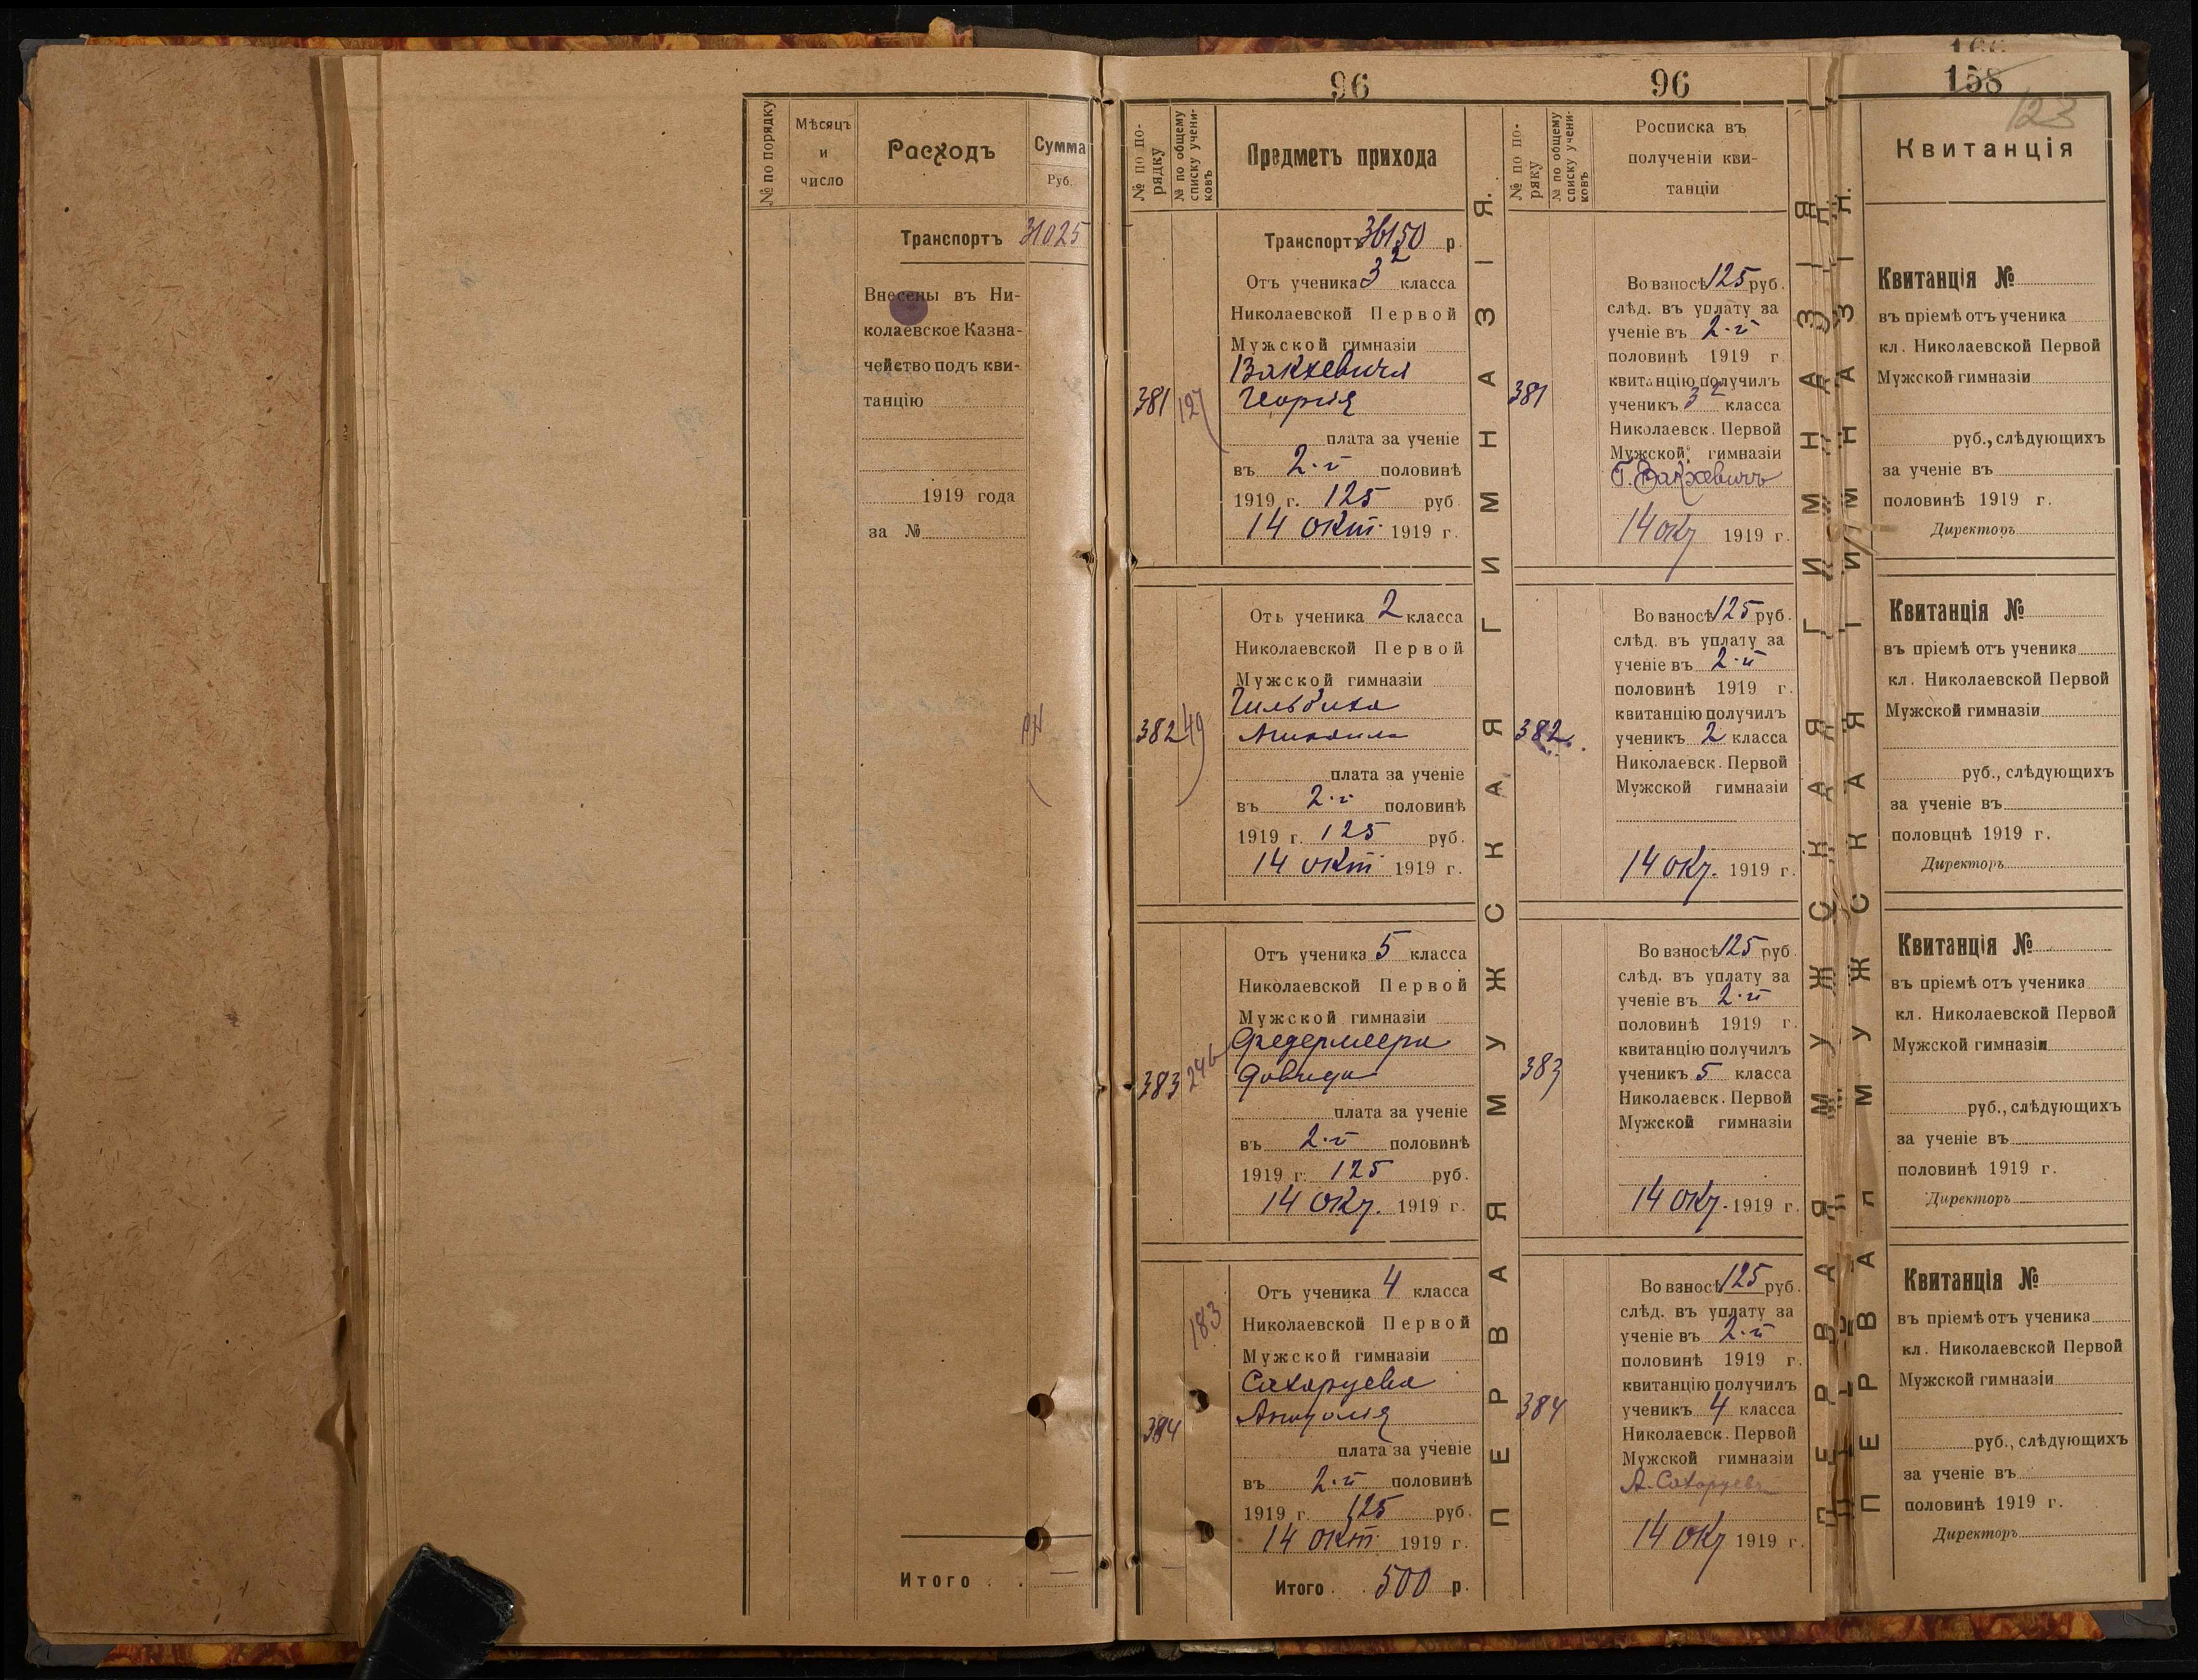 № по порядку
Мѣсяцъ
и
число
Расходъ
Сумма
Руб.
Транспортъ 31025
Внесены въ Ни-
колаевское Казна-
чейство подъ кви-
танцію
1919 года
за №
Итого . . —
96
№ по по-
рядку
№ по общему
списку учени-
ковъ
Предметъ прихода
Транспортъ 36150 р.
381
127
Отъ ученика 3 2 класса
Николаевской Первой
Мужской гимназіи
Вакхевича
Георгія
плата за ученіе
въ 2-й половинѣ
1919 г. 125 руб
14 окт. 1919 г.
382
49
Отъ ученика 2 класса
Николаевской Первой
Мужской гимназіи
Михаила
плата за ученіе
въ 2-й половинѣ
1919 г. 125 руб.
14 окт 1919 г.
383
246
Отъ ученика 5 класса
Николаевской Первой
Мужской гимназіи
Федермеера
Давида
плата за ученіе
въ 2-й половинѣ
1919 г. 125 руб.
14 окт. 1919 г.
384
183
Отъ ученика 4 класса
Николаевской Первой
Мужской гимназіи
Сахаруева
Анатолія
плата за ученіе
въ 2-й половинѣ
1919 г. 125 руб.
14 окт. 1919 г.
Итого . . 500 р.
ПЕРВАЯ МУЖСКАЯ ГИМНАЗІЯ.
96
№ по по-
ряку
№ по общему
списку учени-
ковъ
Росписка въ
полученіи кви-
танціи
381
Во взносѣ 125 руб.
слѣд. въ уплату за
ученіе въ 2-й
половинѣ 1919 г.
квитанцію получилъ
ученикъ 3 2 класса
Николаевск. Первой
Мужской гимназіи
Г. Вакхевичъ
14 окт 1919 г.
382
Во взносѣ 125 руб.
слѣд. въ уплату за
ученіе въ 2-й
половинѣ 1919 г.
квитанцію получилъ
ученикъ 2 класса
Николаевск. Первой
Мужской гимназіи
14 окт. 1919 г.
383
Во взносѣ 125 руб.
слѣд. въ уплату за
ученіе въ 2-й
половинѣ 1919 г.
квитанцію получилъ
ученикъ 5 класса
Николаевск. Первой
Мужской гимназіи
14 окт. 1919 г.
384
Во взносѣ 125 руб.
слѣд. въ уплату за
ученіе въ 2-й
половинѣ 1919 г.
квитанцію получилъ
ученикъ 4 класса
Николаевск. Первой
Мужской гимназіи
А. Сахаруевъ
14 окт 1919 г.
ПЕРВАЯ МУЖСКАЯ ГИМНАЗІЯ
ПЕРВАЯ МУЖСКАЯ ГИМНАЗІЯ.
158
123
Квитанція
Квитанція №
въ пріемѣ отъ ученика
кл. Николаевской Первой
Мужской гимназіи
руб., слѣдующихъ
за ученіе въ
половинѣ 1919 г.
Директоръ
Квитанція №
въ пріемѣ отъ ученика
кл. Николаевской Первой
Мужской гимназіи
руб., слѣдующихъ
за ученіе въ
половцнѣ 1919 г.
Директоръ
Квитанція №
въ пріемѣ отъ ученика
кл. Николаевской Первой
Мужской гимназіи
руб., слѣдующихъ
за ученіе въ
половинѣ 1919 г.
Директоръ
Квитанція №
въ пріемѣ отъ ученика
кл. Николаевской Первой
Мужской гимназіи
руб., слѣдующихъ
за ученіе въ
половинѣ 1919 г.
Директоръ